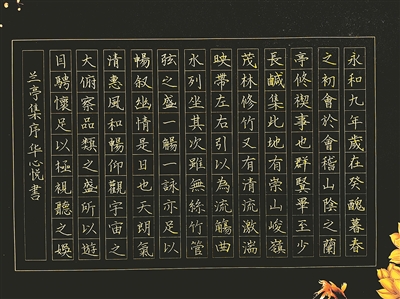 永和九年歲在癸醜暮春
之初會於會稽山陰之蘭
亭修禊事也群賢畢至少
長鹹集此地有崇山峻嶺
茂林修竹又有清流激湍
映帶左右引以為流觴曲
水列坐其次雖無絲竹管
弦之盛一觴一詠亦足以
暢叙幽情是日也天朗氣
清惠風和暢仰觀宇宙之
大俯察品類之盛所以遊
目騁懷足以極視聽之娛
兰亭集序 华心悦書